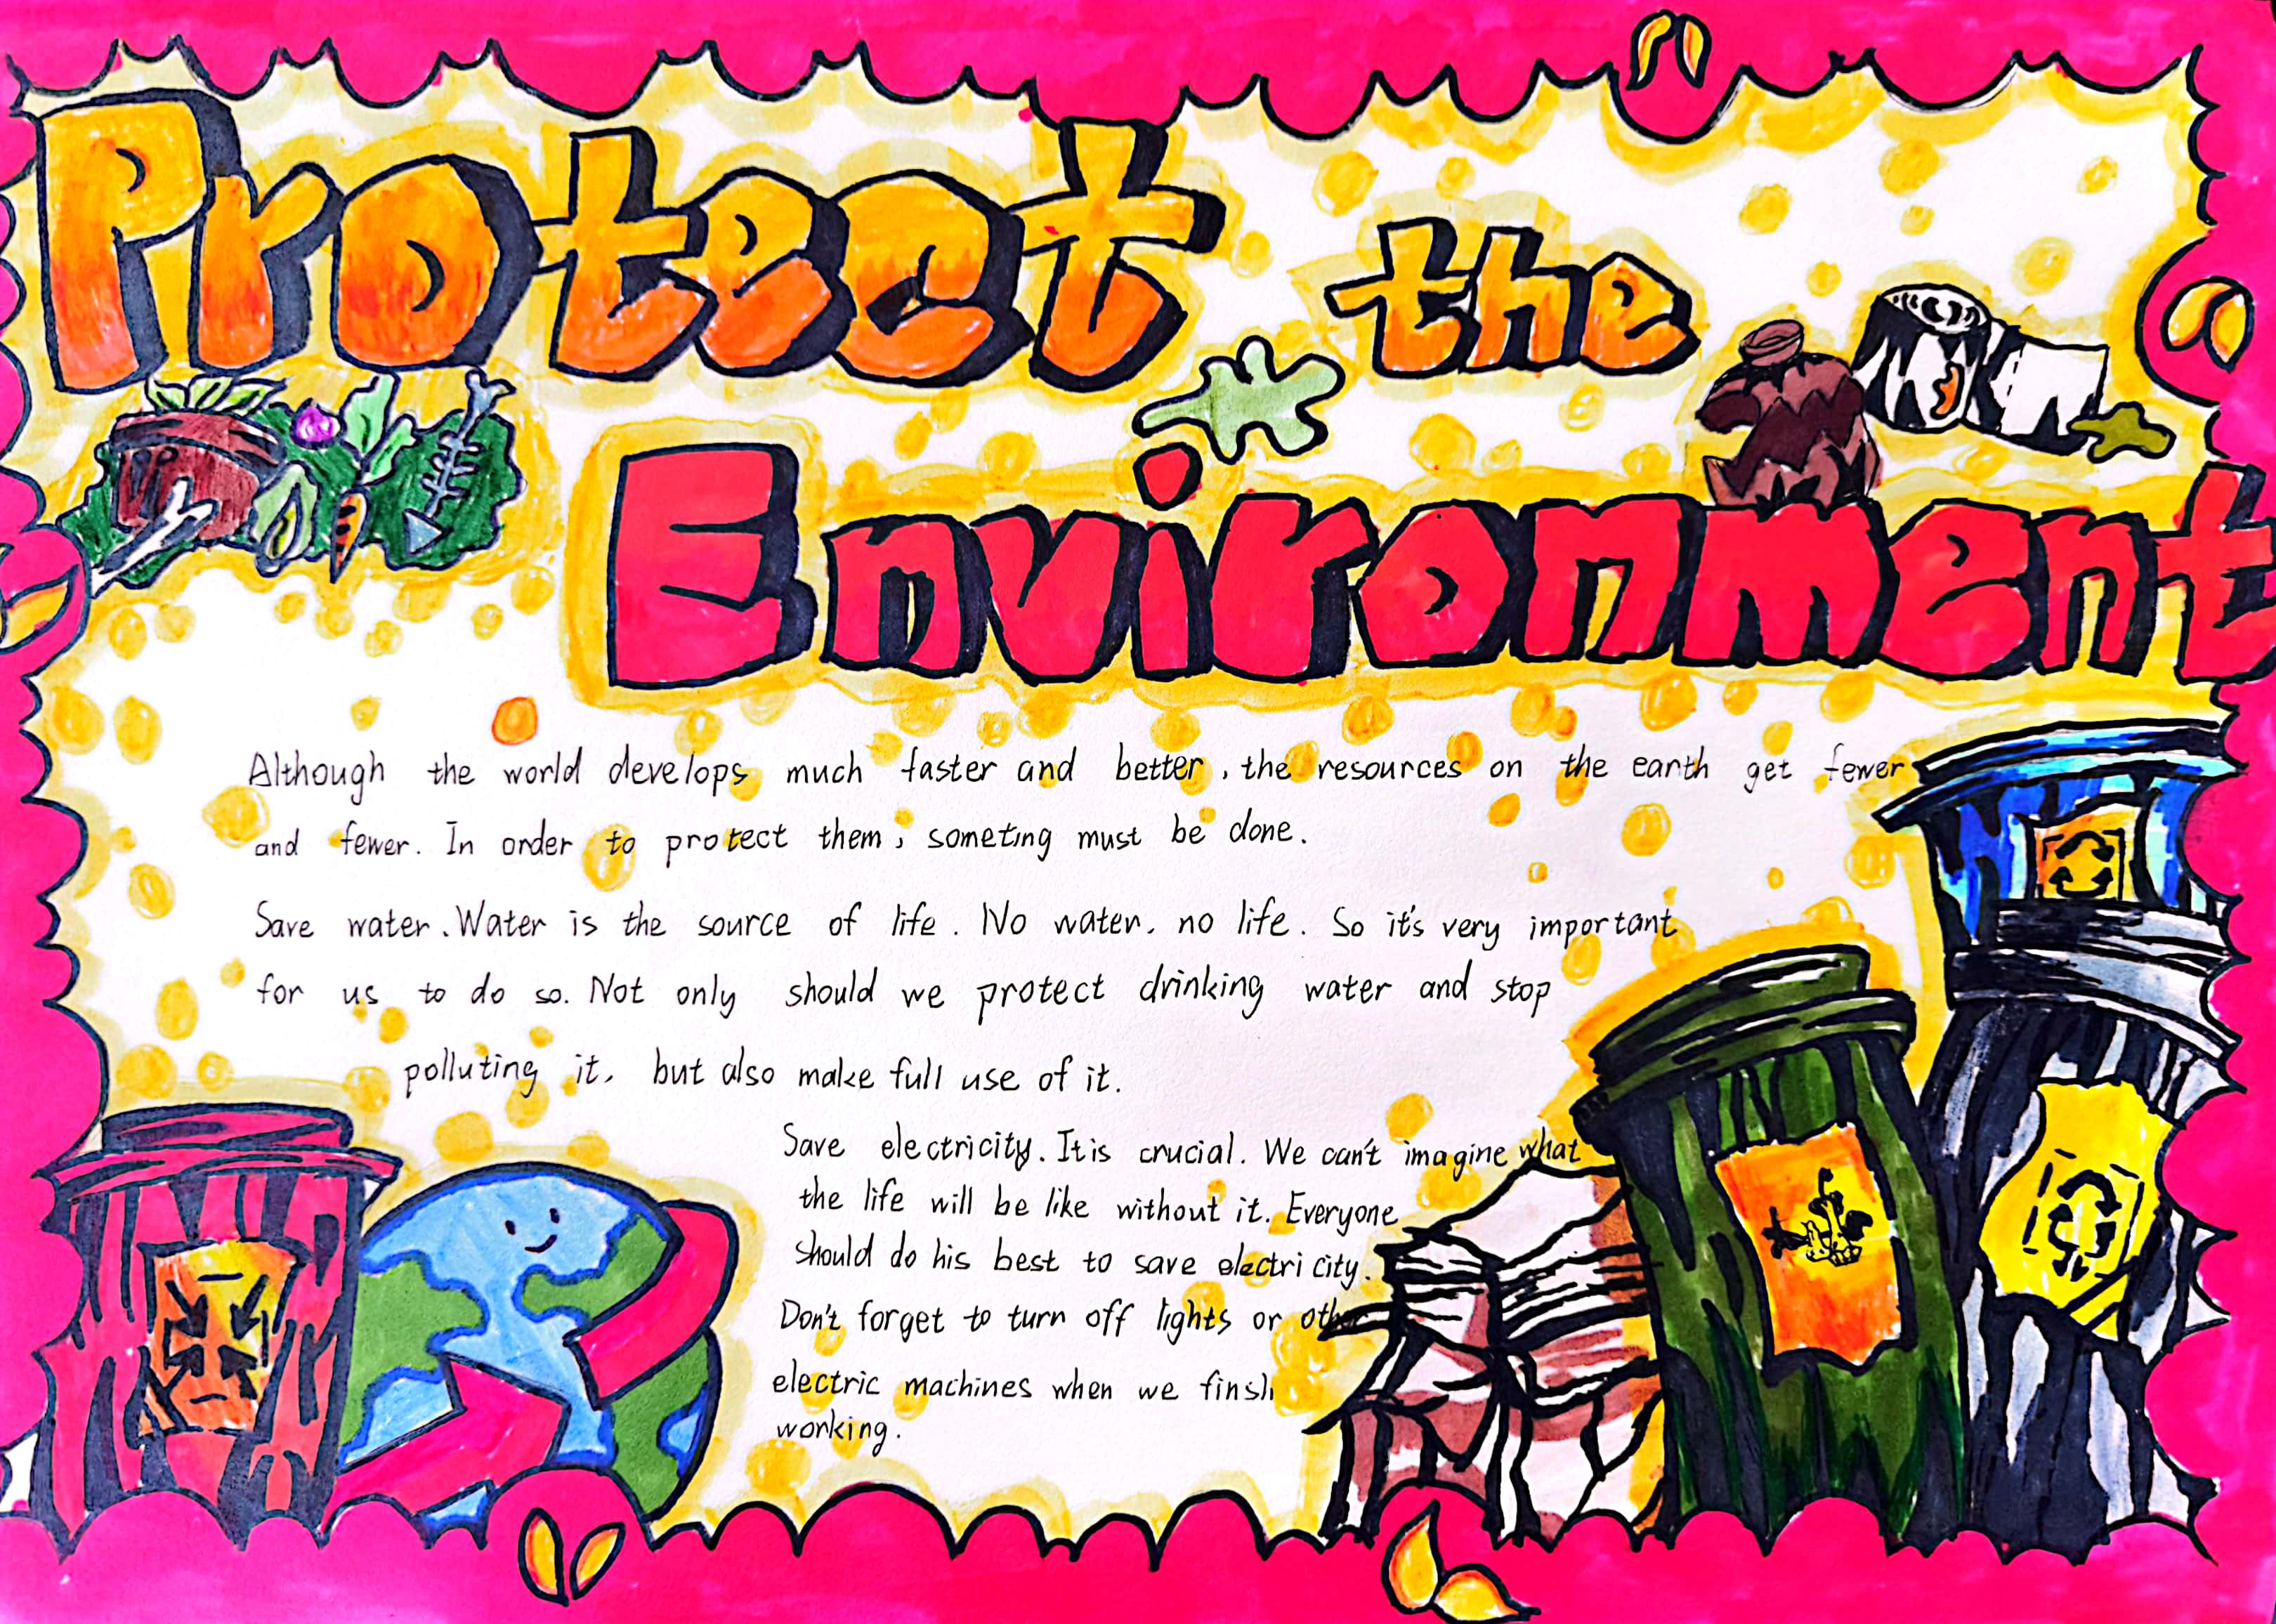 Protect the
Environment
Although the world develops much faster and better, the resources on the earth get fewer
and fewer. In order to protect them, someting must be done.
Save water. Water is the source of life. No water, no life. So it's very important
for us to do so. Not only should we protect drinking water and stop
polluting it, but also make full use of it.
Save electricity. It is crucial. We can't imagine what
the life will be like without it. Everyone
should do his best to save electricity.
Don't forget to turn off lights or other
electric machines when we finsh
working.